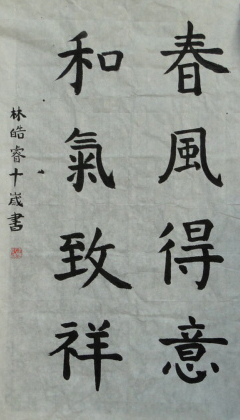 春風得意
和氣致祥
林皓睿十歲書